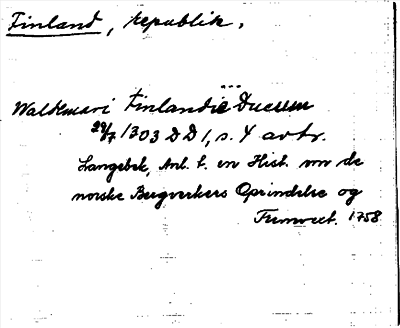 Finland, republik.
Waldemari Finlandiæ Ducum
29/7 1303 D D 1, s. 4 avtr.
Langebek, Anl. t. en Hist. om de
norske Bergverkers Oprindelse og
Fremvext. 1758